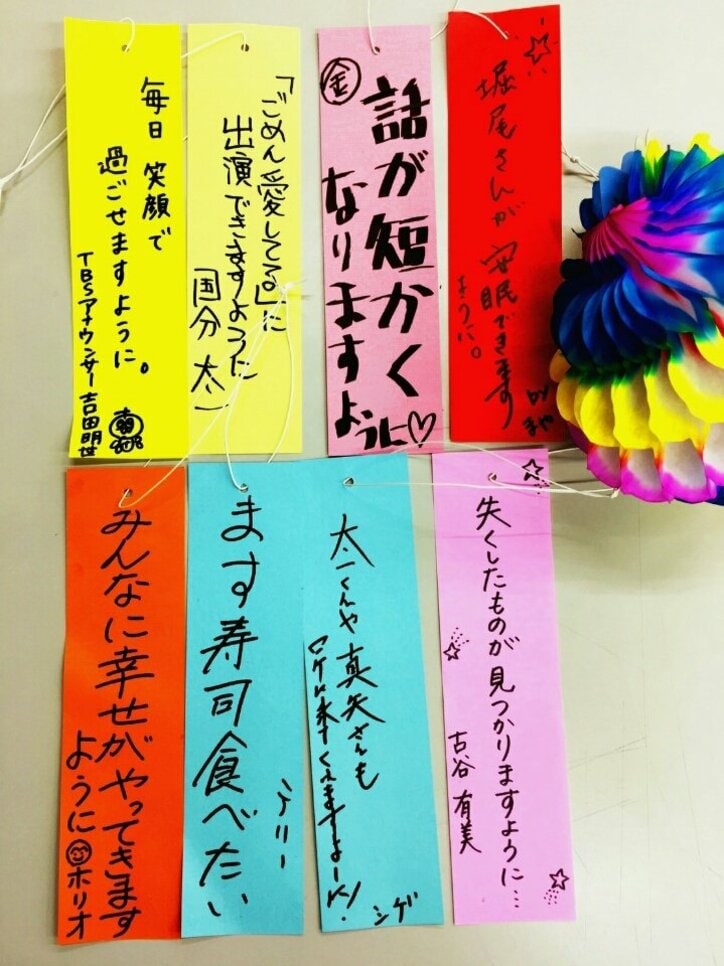 毎日 笑顔で
過ごせますように。
TBSアナウンサー 吉田明世
「ごめん愛してる」に
出演できますように
国分 太一
㊎
話が短かく
なりますように♡
堀尾さんが 安眠できます
ように。
by まや
みんなに幸せがやってきます
ように ホリオ
ます寿司食べたい
太一くんや 真矢さんも
ロケに来てくれますよーに!
シゲ
失くしたものが 見つかりますように…
古谷 有美